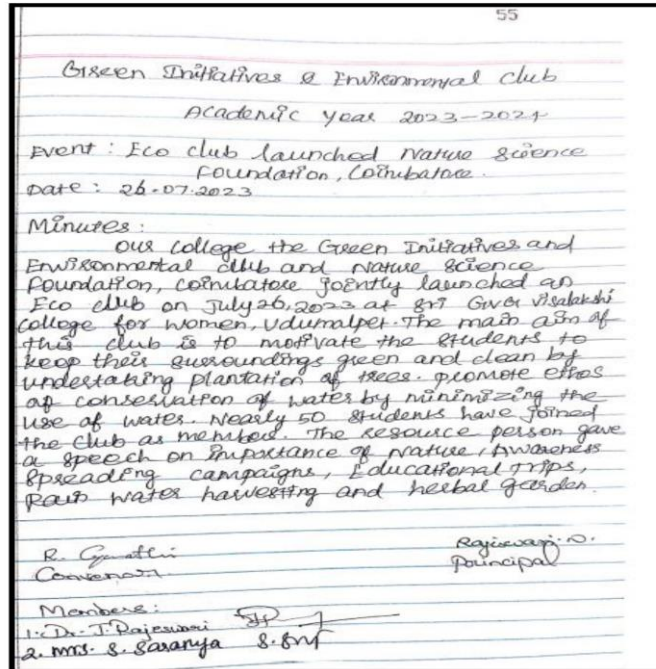 55
Green Initiatives & Environmental club
Academic Year 2023-2024
Event : Eco club launched Nature Science
Foundation, Coimbatore.
Date : 26.07.2023
Minutes :
Our college the Green Initiatives and
Environmental club and Nature Science
Foundation, Coimbatore jointly launched an
Eco club on July 26, 2023 at Sri GVG Visalakshi
College for Women, Udumalpet. The main aim of
this club is to motivate the students to
keep their surroundings green and clean by
undertaking plantation of trees. promote ethos
of conservation of water by minimizing the
use of water. Nearly 50 students have joined
the club as members. The resource person gave
a speech on Importance of Nature, Awareness
Spreading campaigns, Educational Trips,
Rain water harvesting and herbal garden.
R.
Convenor
Rajeswari.
Principal
Members :
1. Dr. J. Rajeswari
2. Mrs. S. Saranya